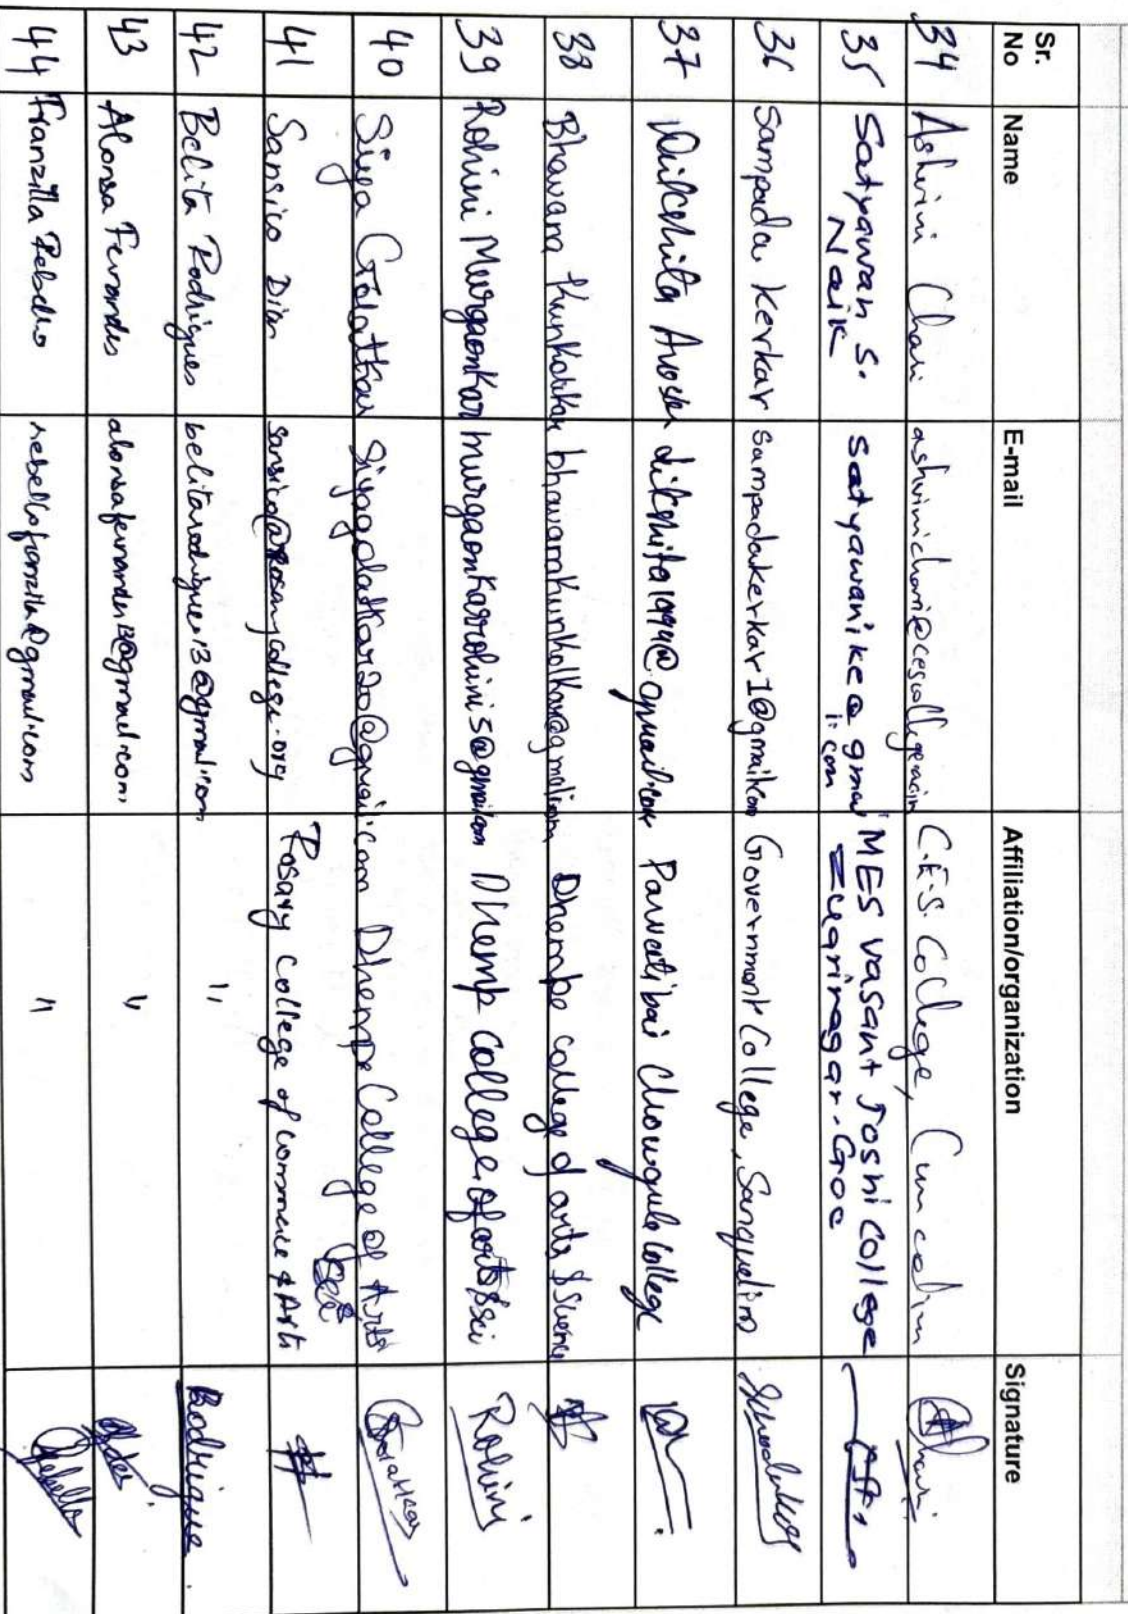 Sr. No Name E-mail Affiliation/organization Signature
34 Ashwini Chari C.E.S. College, Cuncolim
35 Satyawan S. Naik MES Vasant Joshi College Zuarinagar-Goa
36 Sampada Kerkar sampadakerkar1@gmail.com Government College, Sanquelim
37 Dikshita dikshita1994@gmail.com Parvatibai Chowgule College
38 Bhavana Dhempe college of arts & Science
39 Rohini Murgaonkar murgaonkarrohini5@gmail.com Dhemp College of arts & Sci Rohini
40 Siya Golatkar siyagolatkar20@gmail.com Dhempe College of Arts & Sci
41 Sansico Dias sansico@rosarycollege.org Rosary College of commerce & Arts
42 Belita Rodrigues belitarodrigues13@gmail.com " Rodrigues
43 Alonsa Fernandes alonsafernandes13@gmail.com "
44 Franzilla Rebello rebellofranzilla@gmail.com " Rebello